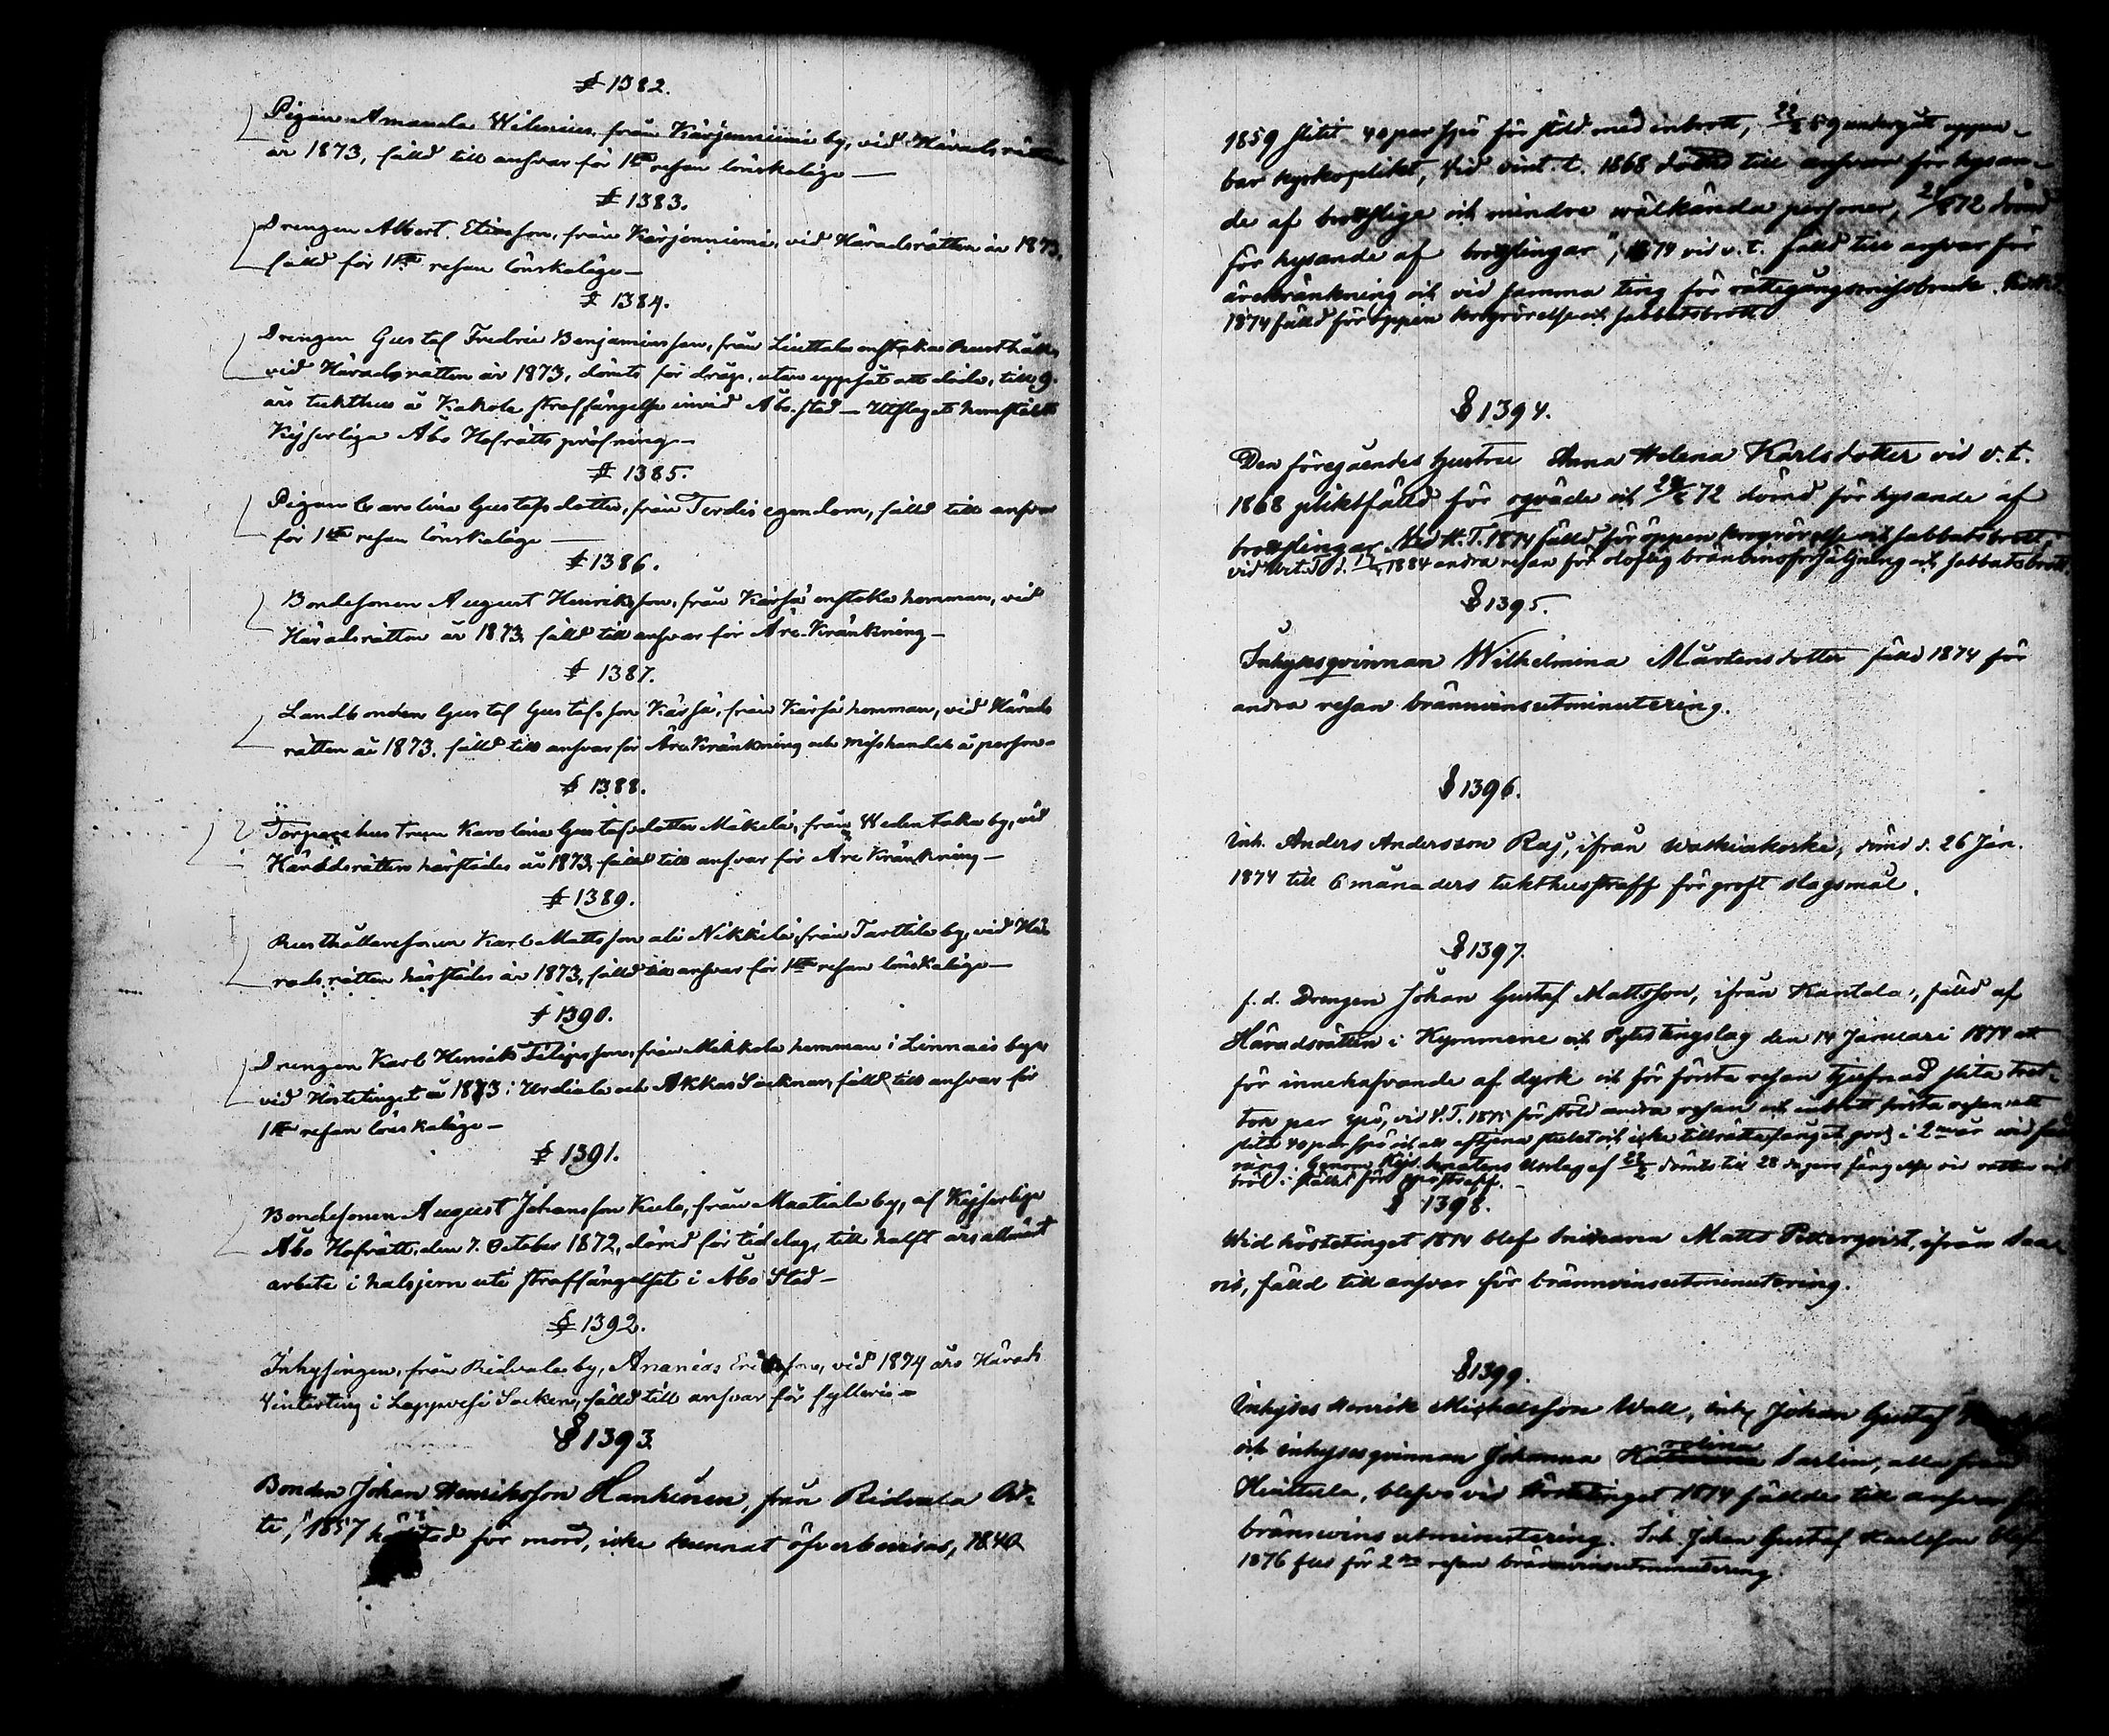 § 1382.
Pigan Amanda Wilenius, från Kärjenniemi by, vid Häradsrätten
år 1873, fälld till ansvar för 1sta resan lönskaläge —
§ 1383.
Drengen Albert Eliasson, från Kärjenniemi, vid Häradsrätten år 1873,
fälld för 1sta resan lönskaläge —
§ 1384.
Drengen Gustaf Fredric Benjaminsson, från enstaka Rusthåll,
vid Häradsrätten år 1873, dömts för dråp, utan uppsåt att döda, till 9.
års tukthus å Kakola straffängelse invid Åbo stad — Utslaget hemstäldt
Kejserliga Åbo Hofrätts pröfning —
§ 1385.
Pigan Carolina Gustafsdotter, från egendom, fälld till ansvar
för 1sta resan lönskaläge —
§ 1386.
Bondesonen August Henriksson, från Kärsä enstaka hemman, vid
Häradsrätten år 1873, fälld till ansvar för Äre-Kränkning —
§ 1387.
Landbonden Gustaf Gustafsson Kärsä, från Kärsä hemman, vid Härads
rätten år 1873. fälld till ansvar för Äre Kränkning och misshandel å person —
§ 1388.
Torparehustrun Karolina Gustafsdotter Mäkelä, från Wedentaka by, vid
Häradsrätten härstädes år 1873, fälld till ansvar för Äre Kränkning —
§ 1389.
Rusthållaresonen Karl Mattsson ali Nikkilä, från Tarttila by, vid Hä-
radsrätten härstädes år 1873, fälld till ansvar för 1sta resan lönskaläge —
§ 1390.
Drengen Karl Henrik Filipsson, från Mikkola hemman i Linnais by,
vid Höstetinget år 1873 i Urdiala och Akkas Socknar, fälld till ansvar för
1sta resan lönskaläge —
§ 1391.
Bondesonen August Johansson Kula, från Maatiala by, af Kejserliga
Åbo Hofrätt, den 7. October 1872, dömd för tidelag, till halft års allmänt
arbete i halsjern uti straffängelset i Åbo Stad —
§ 1392.
Inhysingen, från Ridvala by, Ananias Eriksson, vid 1874 års Härads
Vinterting i Loppvesi Socken, fälld till ansvar för fylleri —
§ 1393.
Bonden Johan Henriksson Hankinen, från Ridvala
1857 för mord, icke kunnat öfverbevisas, 1840
1859 slitit 40 par spö för stöld med inbrott, 59 undergått uppen-
bar kyrkoplikt, Vid vint. t. 1868 dömd till ansvar för hysan-
de af brottslige och mindre wälkända personer, 72 dömd
för hysande af brottslingar", 1874 vid v. t. fälld till ansvar för
ärekränkning och vid samma ting för rättegångsmissbruk.
1874 fälld för öppen krogrörelse och sabbatsbrott.
§ 1394.
Den föregåendes hustru Anna Helena Karlsdotter vid v. t.
1868 pliktfälld för oqväde och 72 dömd för hysande af
brottslingar. Vid H. T. 1874 fälld för öppen krogrörelse och sabbatsbrott,
vid 1884 andra resan för oloflig bränvinsförsäljning och sabbatsbrott.
§ 1395.
Inhysesqvinnan Wilhelmina Mårtensdotter fälld 1874 för
andra resan brännvinsutminutering.
§ 1396.
Inh. Anders Andersson Raj, ifrån Walkiakoski, dömd d. 26 Jan.
1874 till 6 månaders tukthusstraff för groft slagsmål.
§ 1397.
f. d. Drengen Johan Gustaf Mattsson, ifrån Kantala, fälld af
Häradsrätten i Kymmene och Pyttis tingslag den 14 Januari 1874 att
för innehafvande af dyrk och för första resan tjufnad slita tret-
ton par spö, vid för stöld andra resan och inbrott första resan att
slita 40 par spö och att aftjena stulet och icke tillrättafånget gods i
Genom Kejs. Senatens Utslag af dömts till 28 dagars fängelse vid vatten och
bröd i stället för spöstraff.
§ 1398.
Wid höstetinget 1874 blef Snickaren Matts Petterqvist, ifrån Saa-
ris, fälld till ansvar för brännvinsutminutering.
§ 1399.
Inhyses Henrik Michelsson Wall, inh. Johan Gustaf
och inhysesqvinnan Johanna Karolina Sarlin, alla från
Huittula, blefvo vid höstetinget 1874 fällde till ansvar för
brännvinsutminutering. Inh. Johan Gustaf Karlsson blef
1876 för 2dra resan brännvinsutminutering.